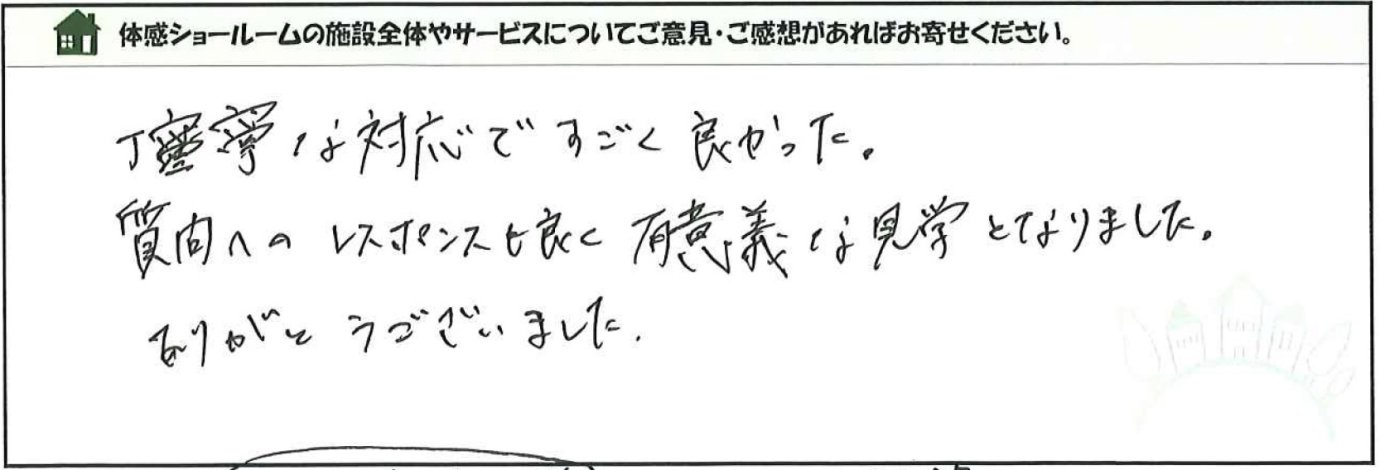 体感ショールームの施設全体やサービスについてご意見・ご感想があればお寄せください。
丁寧な対応ですごく良かった。
質問へのレスポンスも良く有意義な見学となりました。
ありがとうございました。